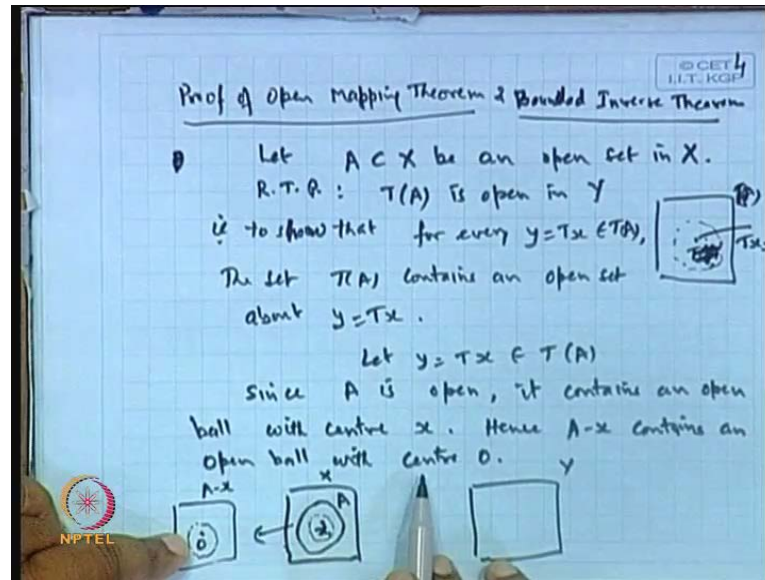 © CET 4
I.I.T. KGP
Proof of Open Mapping Theorem & Bounded Inverse Theorem
Let A ⊂ X be an open set in X.
R.T.P. : T(A) is open in Y
ie to show that for every y=Tx ∈ T(A),
Tx
The set T(A) contains an open set
about y=Tx.
Let y=Tx ∈ T(A)
Since A is open, it contains an open
ball with centre x. Hence A-x contains an
open ball with centre 0.
A-x X Y
0 x A
NPTEL